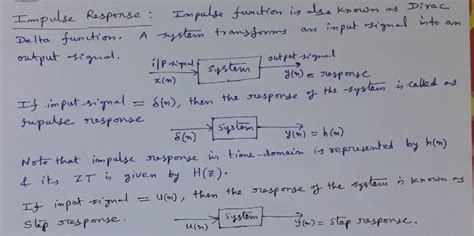 Impulse Response : Impulse function is also known as Dirac
Delta function. A system transforms an input signal into an
output signal.
i/p signal
x(n)
System
output signal
y(n) = response
If input signal = δ(n), then the response of the system is called as
impulse response
δ(n)
System
y(n) = h(n)
Note that impulse response in time-domain is represented by h(n)
& its ZT is given by H(Z).
If input signal = u(n), then the response of the system is known as
Step response.
u(n)
System
y(n) = step response.